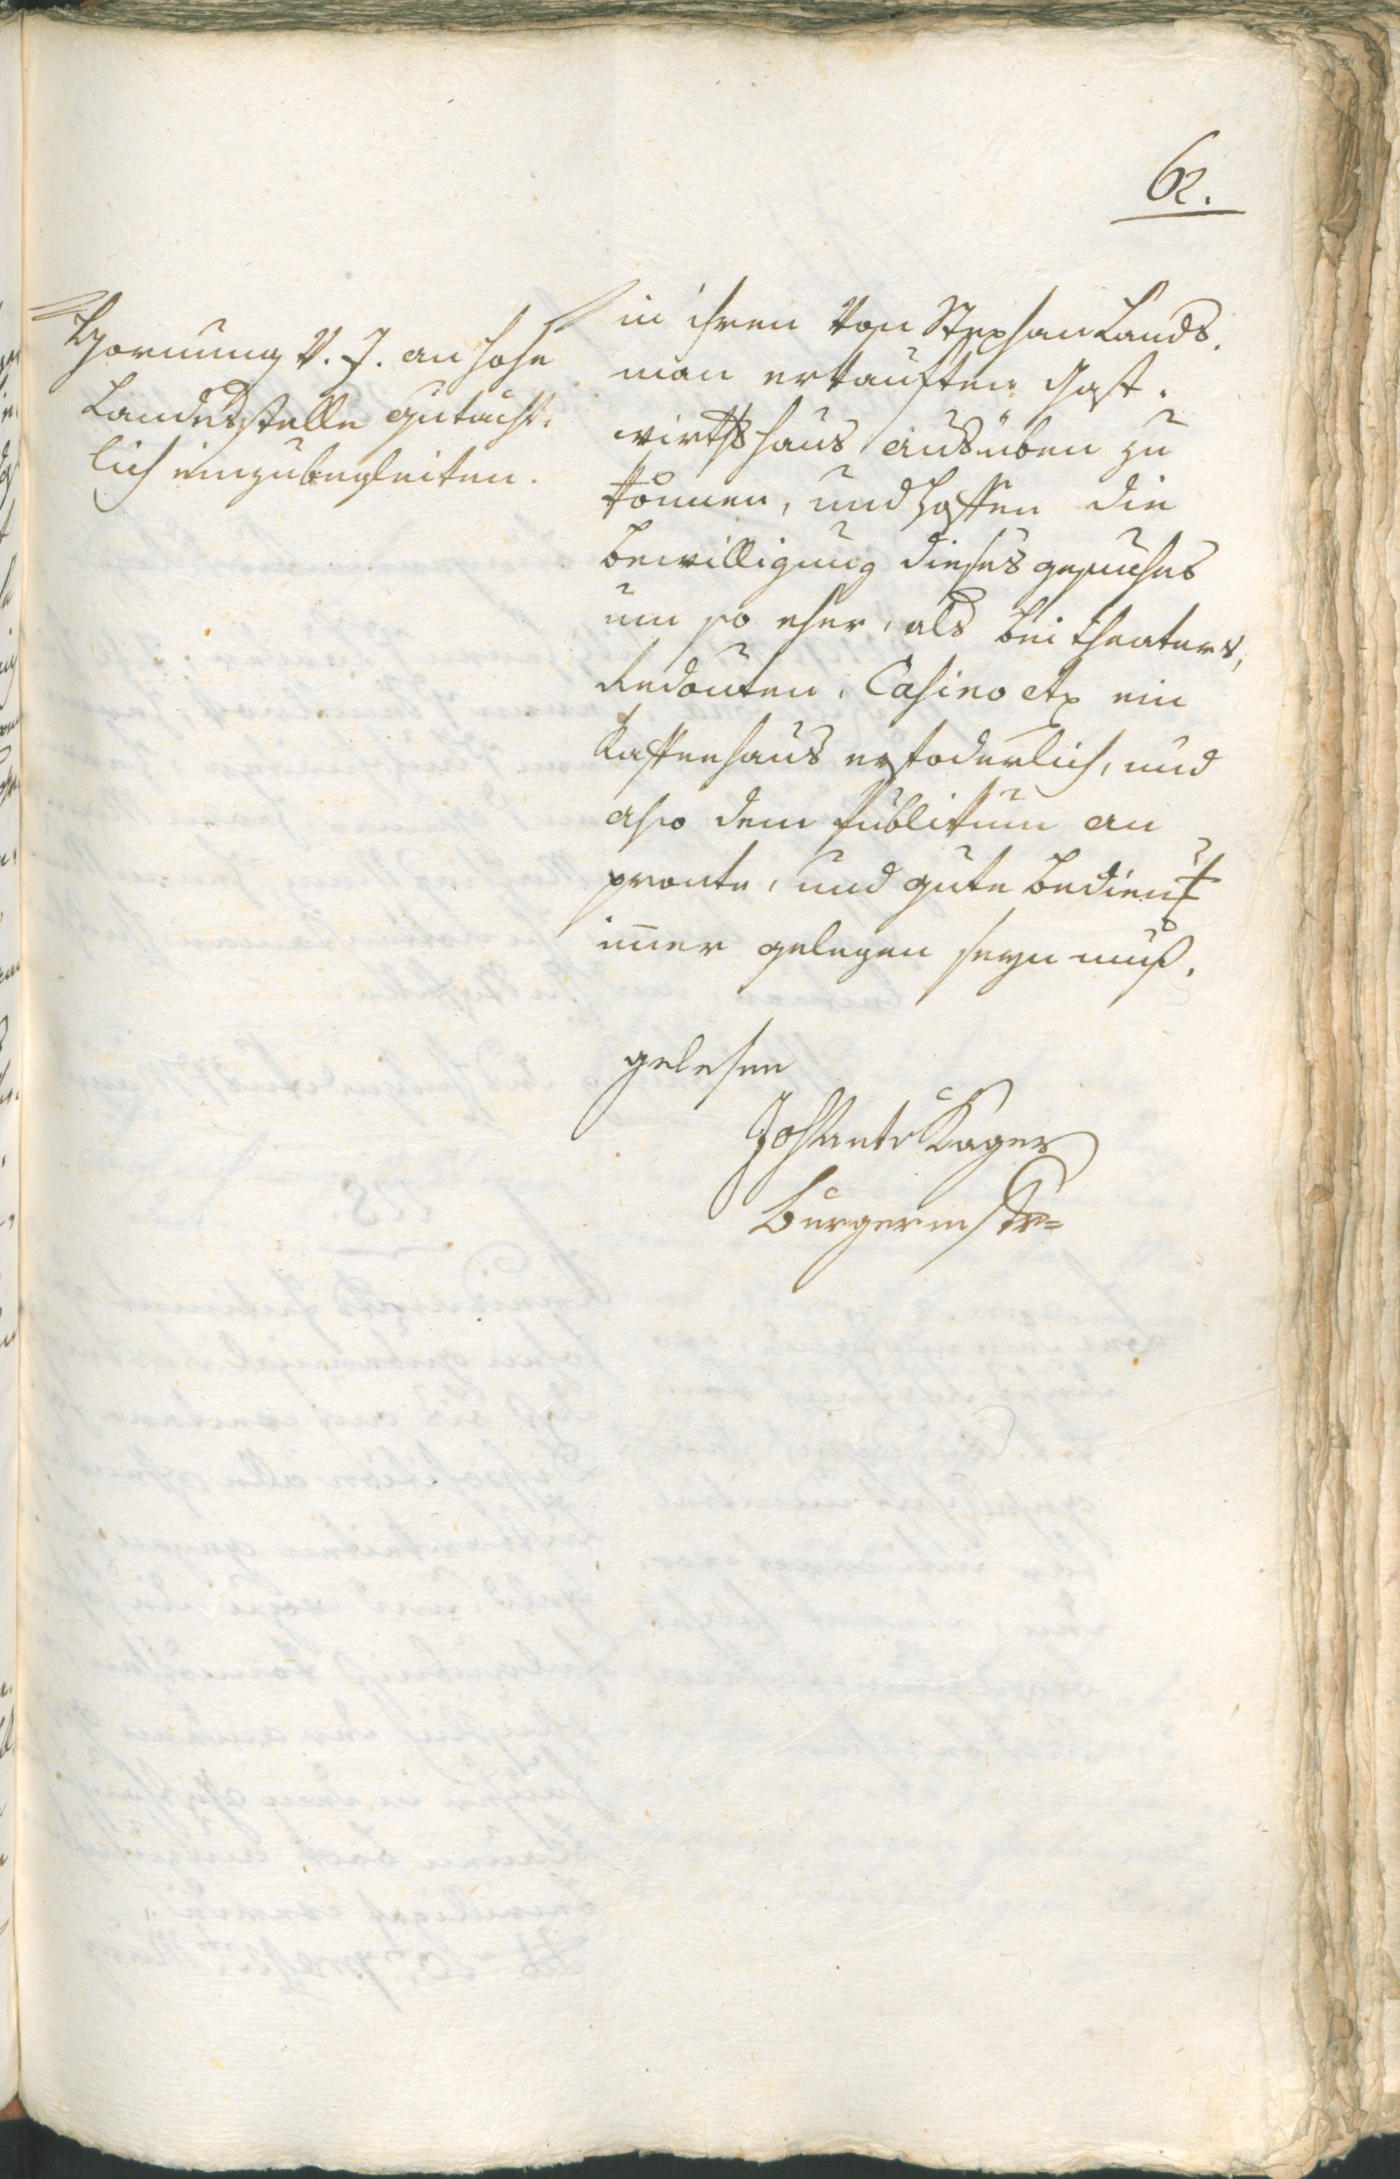 62.
Hornung v. J. an hohe
Landesstelle Gutächt-
lich einzubegleiten.
in ihren von Stephan Lands,
man erkauften Gast-
wirthshaus ausüben zu
können, und hoffen die
Bewilligung dieses gesuches
um so eher, als bei theaters,
Redouten, Casino etc ein
Kaffeehaus erfoderlich, und
also dem Publikum an
promte, und gute Bedien
immer gelegen seyn muß.
gelesen
Joh Kager
Burgermstr=